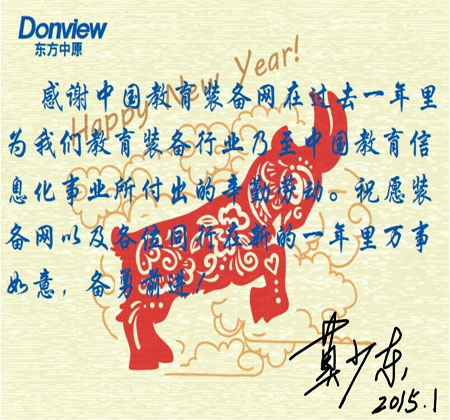 Donview
东方中原
Happy New Year!
感谢中国教育装备网在过去一年里
为我们教育装备行业乃至中国教育信
息化事业所付出的辛勤劳动。祝愿装
备网以及各位同行在新的一年里万事
如意，奋勇前进！
2015.1